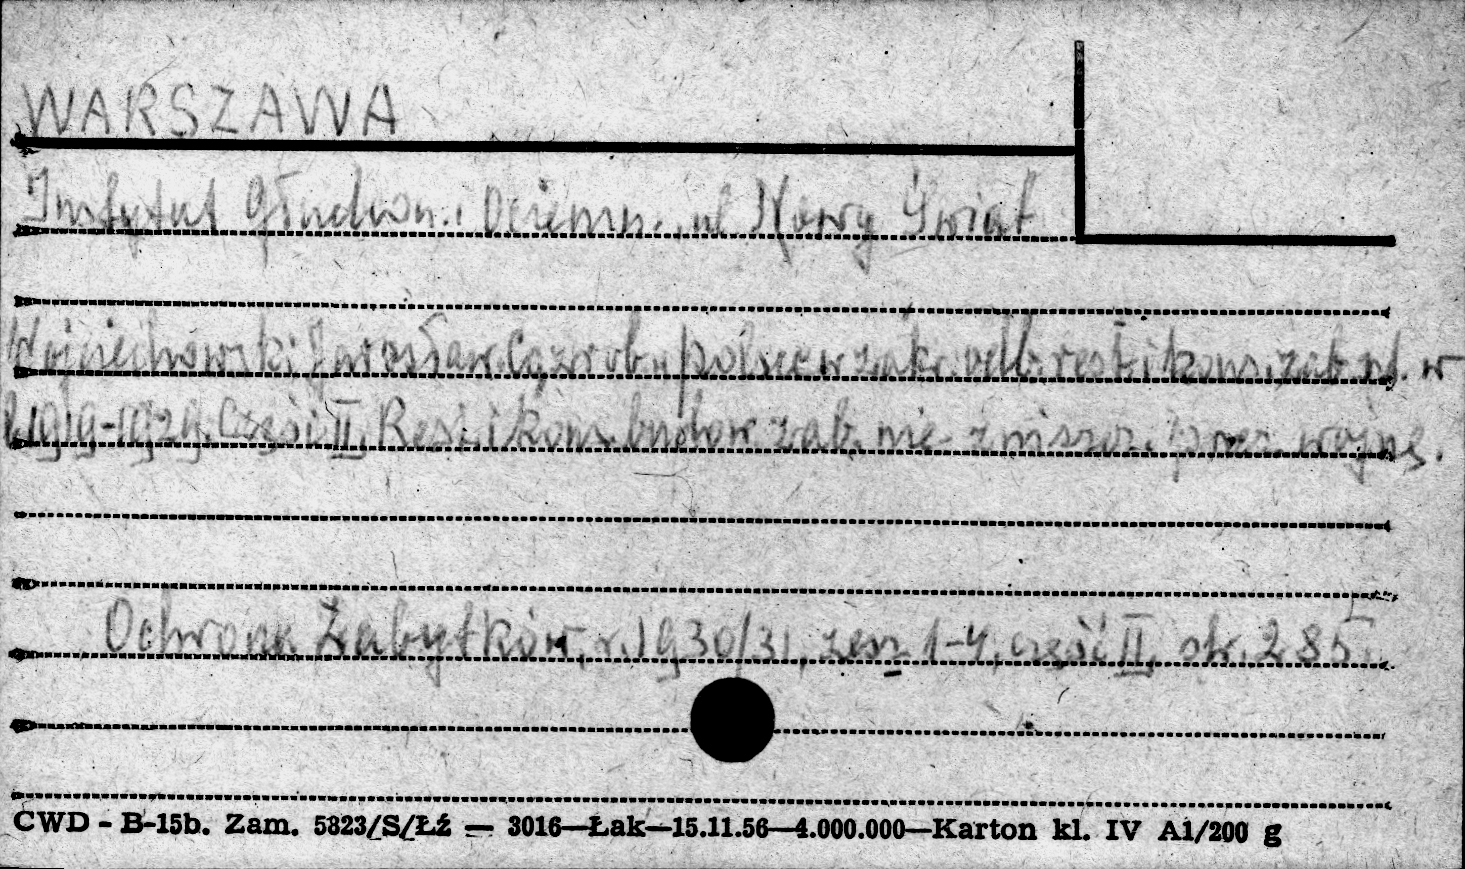 WARSZAWA
Instytut Głuchon. i Ociemn., ul Nowy Świat
Wojciechowski Jarosław. Cz. w rob. polsce w zakr. odb. rest. i kons. zab. pl. w
l. 1919-1929. Część II Rest. i kons. budow. zab. nie zniszcz. przez wojnę.
Ochrona Zabytków, r. 1930/31, zesz 1-4, część II, str. 285.
CWD - B-15b. Zam. 5823/S/Łź — 3016—Łak—15.11.56—4.000.000—Karton kl. IV A1/200 g